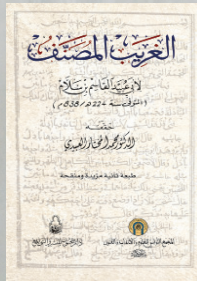 الغريب المصنف
لأبي عبيد القاسم بن سلام
(المتوفى سنة 224 هـ / 838 م)
حققه
الدكتور محمد المختار العبيدي
طبعة ثانية مزيدة ومنقحة
المجمع التونسي للعلوم والآداب والفنون
دار سحنون للنشر والتوزيع